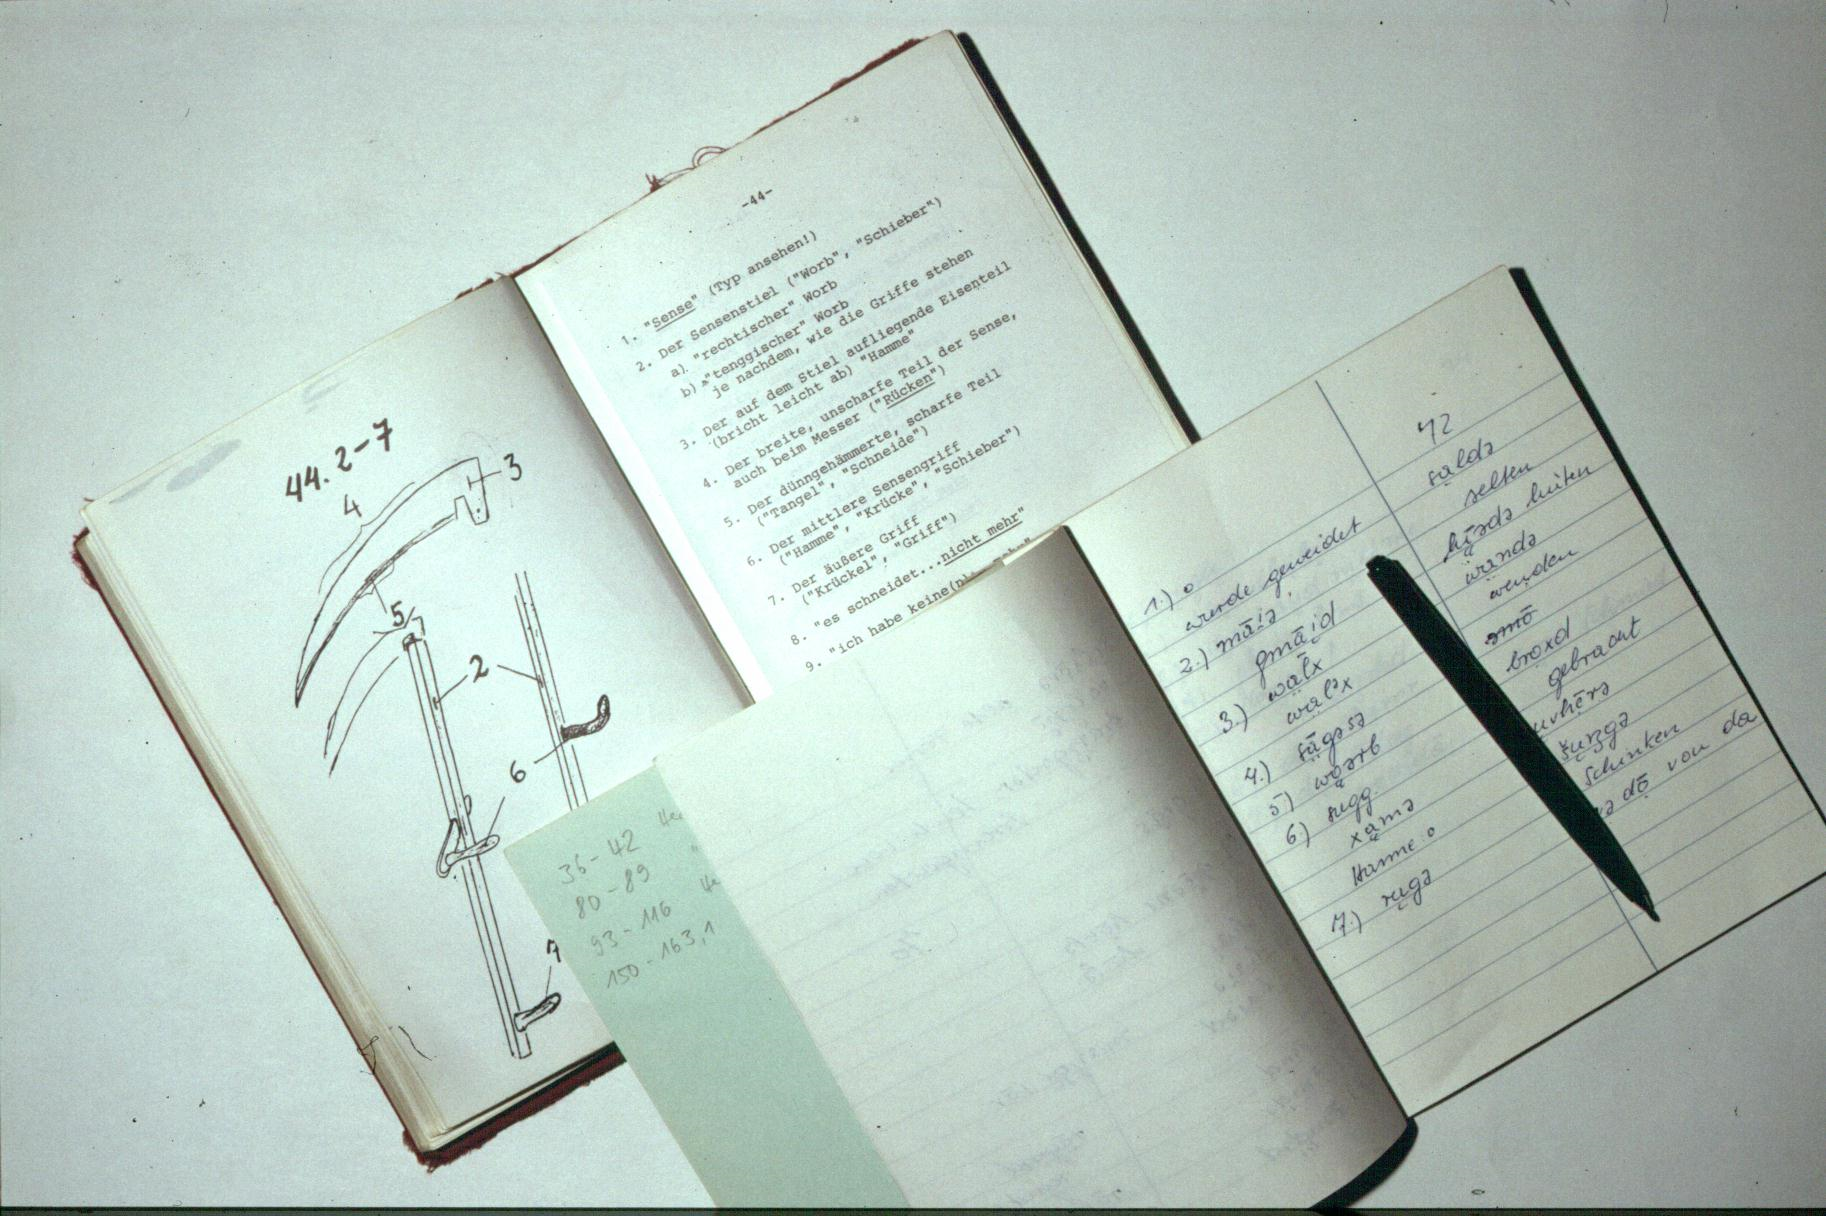 44.2-7
4
3
5
2
6
7
-44-
1. "Sense" (Typ ansehen!)
2. Der Sensenstiel ("Worb", "Schieber")
a) "rechtischer" Worb
b) "tenggischer" Worb
je nachdem, wie die Griffe stehen
3. Der auf dem Stiel aufliegende Eisenteil
(bricht leicht ab) "Hamme"
4. Der breite, unscharfe Teil der Sense,
auch beim Messer ("Rücken")
5. Der dünngehämmerte, scharfe Teil
("Tangel", "Schneide")
6. Der mittlere Sensengriff
("Hamme", "Krücke", "Schieber")
7. Der äußere Griff
("Krückel", "Griff")
8. "es schneidet...nicht mehr"
9. "ich habe keine
36-42
80-89
93-116
150-163,1
1.) o
wurde geweidet
2.) māiə
gmāid
3.) wālx
wälx
4.) sāgəsə
5) woərb
6) sugg.
xamə
Hamme o
7.) rugə
42
saldə
selten
hīədə hüten
wendə
wenden
broxd
gebracht
šuŋgə
Schinken
dō von da